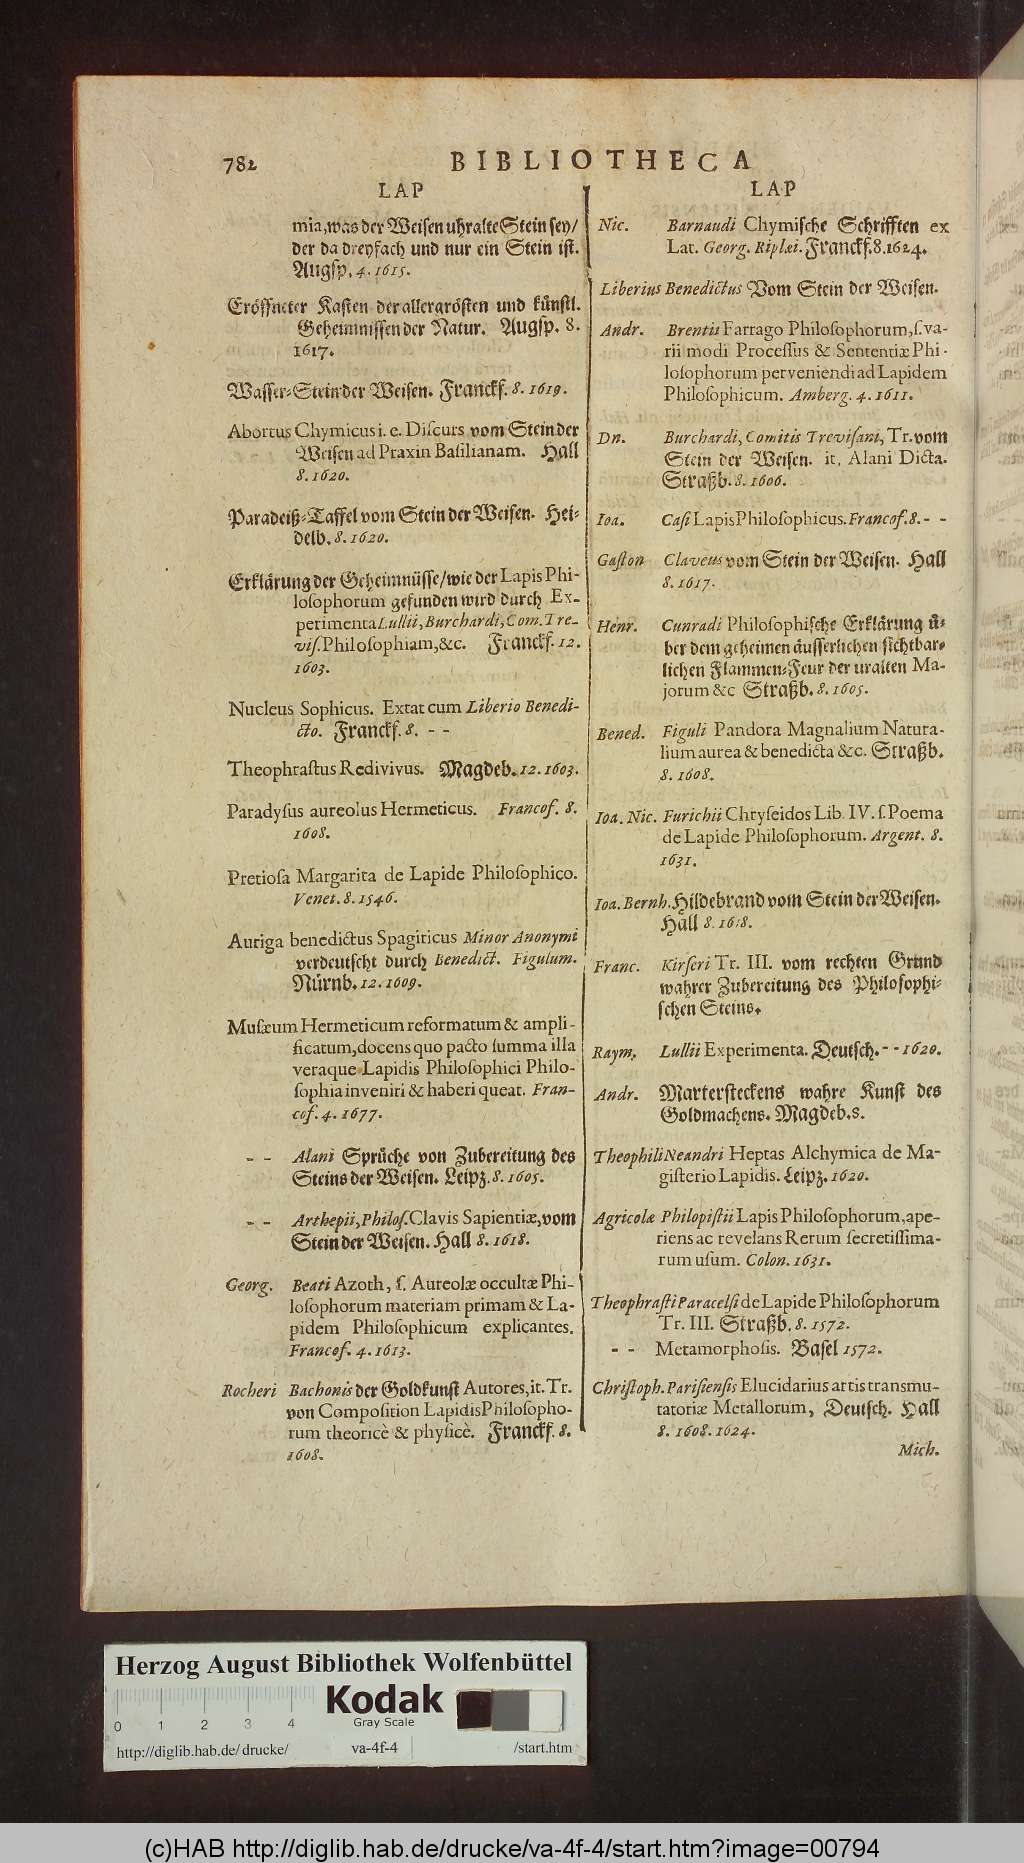 782 BIBLIOTHECA
LAP
mia, was der Weisen uhralte Stein sey/
der da dreyfach und nur ein Stein ist.
Augsp. 4. 1615.
Eröffneter Kasten der allergrösten und künstl.
Geheimnissen der Natur. Augsp. 8.
1617.
Wasser-Stein der Weisen. Franckf. 8. 1619.
Abortus Chymicus i. e. Discurs vom Stein der
Weisen ad Praxin Basilianam. Hall
8. 1620.
Paradeiß-Taffel vom Stein der Weisen. Hei-
delb. 8. 1620.
Erklärung der Geheimnüsse/wie der Lapis Phi-
losophorum gefunden wird durch Ex-
perimenta Lullii, Burchardi, Com. Tre-
vis. Philosophiam, &c. Franckf. 12.
1603.
Nucleus Sophicus. Extat cum Liberio Benedi-
cto. Franckf. 8. - -
Theophrastus Redivivus. Magdeb. 12. 1603.
Paradysus aureolus Hermeticus. Francof. 8.
1608.
Pretiosa Margarita de Lapide Philosophico.
Venet. 8. 1546.
Auriga benedictus Spagiricus Minor Anonymi
verdeutscht durch Benedict. Figulum.
Nürnb. 12. 1609.
Musæum Hermeticum reformatum & ampli-
ficatum, docens quo pacto summa illa
veraque Lapidis Philosophici Philo-
sophia inveniri & haberi queat. Fran-
cof. 4. 1677.
- - Alani Sprüche von Zubereitung des
Steins der Weisen. Leipz. 8. 1605.
- - Arthepii, Philos. Clavis Sapientiæ, vom
Stein der Weisen. Hall 8. 1618.
Georg. Beati Azoth, s. Aureolæ occultæ Phi-
losophorum materiam primam & La-
pidem Philosophicum explicantes.
Francof. 4. 1613.
Rocheri Bachonis der Goldkunst Autores, it. Tr.
von Composition Lapidis Philosopho-
rum theoricè & physicè. Franckf. 8.
1608.
LAP
Nic. Barnaudi Chymische Schrifften ex
Lat. Georg. Riplæi. Franckf. 8. 1624.
Liberius Benedictus Vom Stein der Weisen.
Andr. Brentii Farrago Philosophorum, s. va-
rii modi Processus & Sententiæ Phi-
losophorum perveniendi ad Lapidem
Philosophicum. Amberg. 4. 1611.
Dn. Burchardi, Comitis Trevisani, Tr. vom
Stein der Weisen. it. Alani Dicta.
Straßb. 8. 1606.
Ioa. Casi Lapis Philosophicus. Francof. 8. - -
Gaston Claveus vom Stein der Weisen. Hall
8. 1617.
Henr. Cunradi Philosophische Erklärung ü-
ber dem geheimen äusserlichen sichtbar-
lichen Flammen-Feur der uralten Ma-
jorum &c Straßb. 8. 1605.
Bened. Figuli Pandora Magnalium Natura-
lium aurea & benedicta &c. Straßb.
8. 1608.
Ioa. Nic. Furichii Chryseidos Lib. IV. s. Poema
de Lapide Philosophorum. Argent. 8.
1631.
Ioa. Bernh. Hildebrand vom Stein der Weisen.
Hall 8. 1618.
Franc. Kirseri Tr. III. vom rechten Grund
wahrer Zubereitung des Philosophi-
schen Steins.
Raym. Lullii Experimenta. Deutsch. - - 1620.
Andr. Martersteckens wahre Kunst des
Goldmachens. Magdeb. 8.
Theophili Neandri Heptas Alchymica de Ma-
gisterio Lapidis. Leipz. 1620.
Agricolæ Philopistii Lapis Philosophorum, ape-
riens ac revelans Rerum secretissima-
rum usum. Colon. 1631.
Theophrasti Paracelsi de Lapide Philosophorum
Tr. III. Straßb. 8. 1572.
- - Metamorphosis. Basel 1572.
Christoph. Parisiensis Elucidarius artis transmu-
tatoriæ Metallorum, Deutsch. Hall
8. 1608. 1624.
Mich.
Herzog August Bibliothek Wolfenbüttel
Kodak
Gray Scale
0 1 2 3 4
http://diglib.hab.de/drucke/ va-4f-4 /start.htm
(c)HAB http://diglib.hab.de/drucke/va-4f-4/start.htm?image=00794